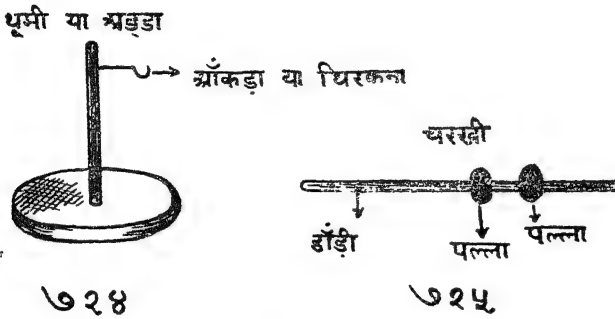 थूमी या अड्डा
आँकड़ा या थिरकना
चरखी
डाँड़ी
पल्ला
पल्ला
७२४
७२५